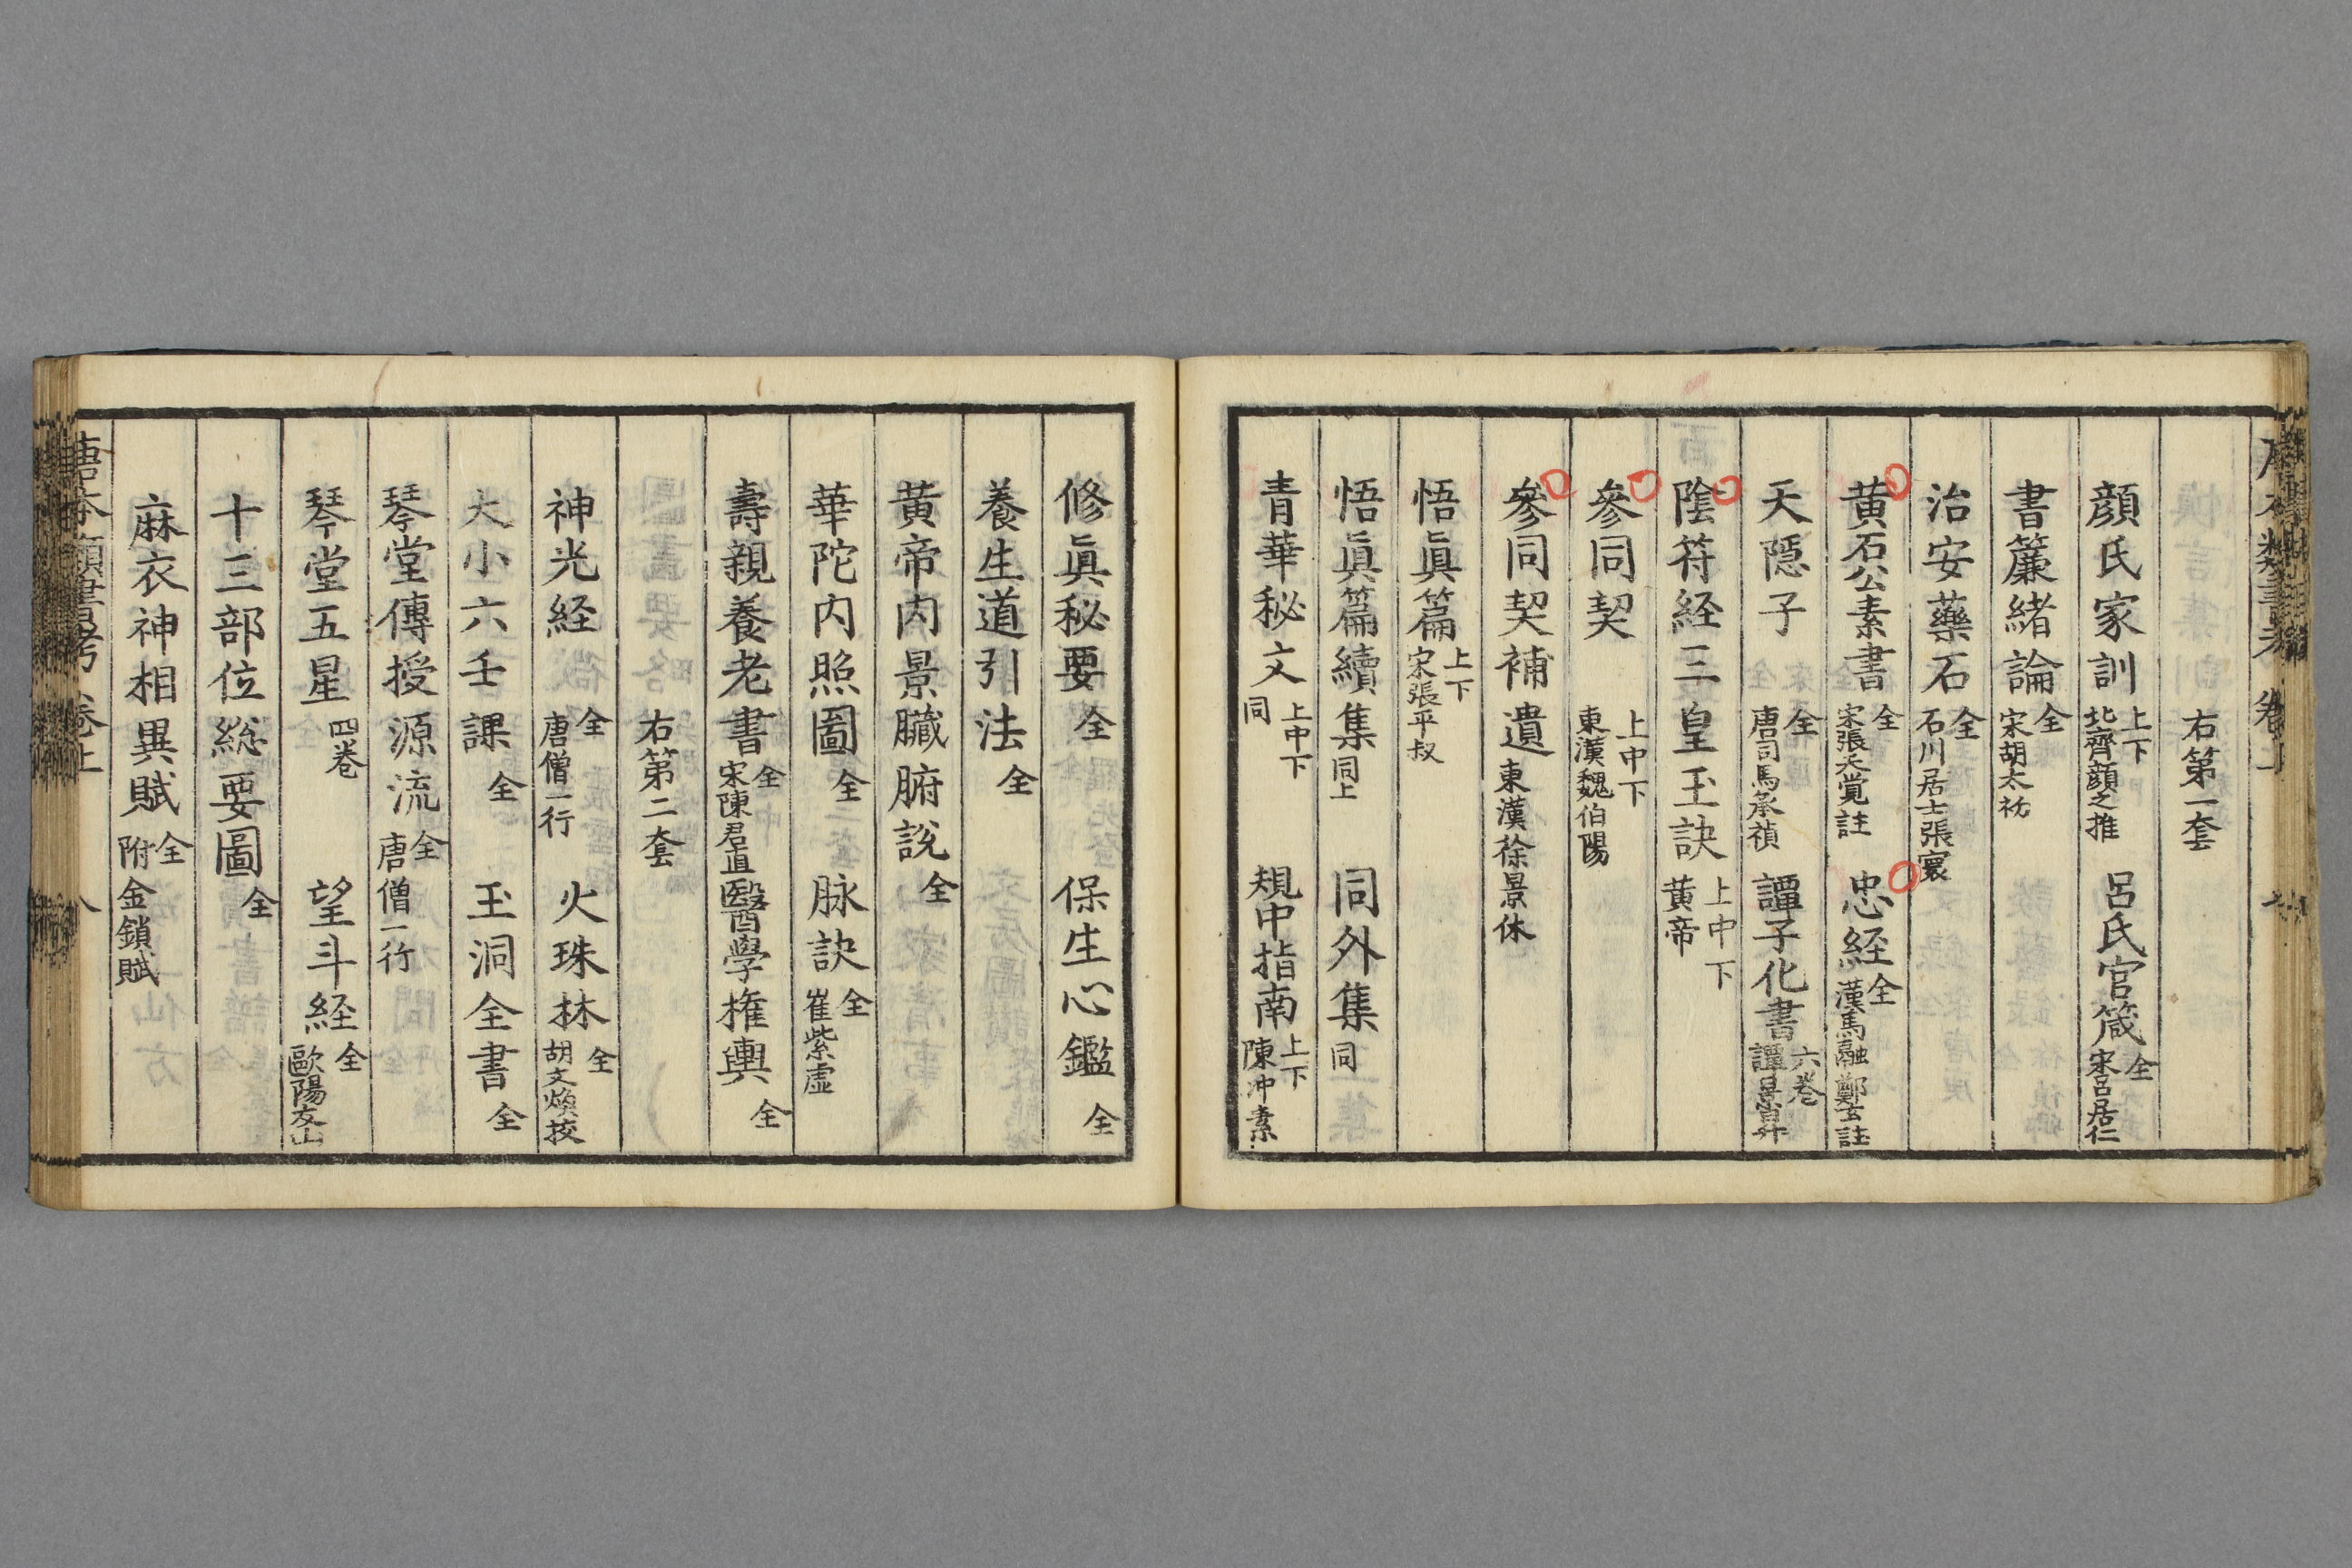 右第一套
顔氏家訓 上下 北齊顔之推 呂氏官箴 全 宋呂居仁
書簾緒論 全 宋胡太初
治安藥石 全 石川居士張寰
黄石公素書 全 宋張天覚註 忠経 全 漢馬融 鄭玄註
天隠子 全 唐司馬承禎 譚子化書 六巻 譚景昇
陰符経三皇玉訣 上中下 黄帝
參同契 上中下 東漢魏伯陽
參同契補遺 東漢徐景休
悟眞篇 上下 宋張平叔
悟眞篇續集 同上 同外集 同
青華秘文 上中下 同 規中指南 上下 陳冲素
修眞秘要 全 保生心鑑 全
養生道引法 全
黄帝内景臓腑説 全
華陀内照圖 全 脉訣 全 崔紫虚
壽親養老書 全 宋陳君直 醫學権輿 全
右第二套
神光経 全 唐僧一行 火珠林 全 胡文煥挍
大小六壬課 全 玉洞全書 全
琴堂傳授源流 全 唐僧一行
琴堂五星 四巻 望斗経 全 歐陽友山
十三部位総要圖 全
麻衣神相異賦 全 附金鎖賦
唐本類書考 巻上 八